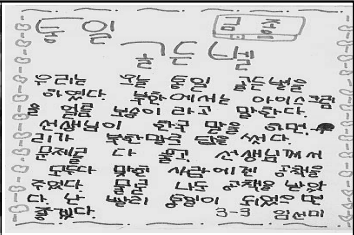 통일
골든벨
우리는 오늘 통일 골든벨을
하였다. 북한에서는 아이스크림
을 얼음 보숭이 라고 말한다.
선생님이 한국 말을 하면, 우
리가 북한말로 답을 썼다.
문제를 다 풀고, 선생님께서
모두다 맞힌 사람에겐 공책을
주었다. 물론 나도 공책을 받았
다. 난 빨리 통일이 되었으면
좋겠다.
3-3